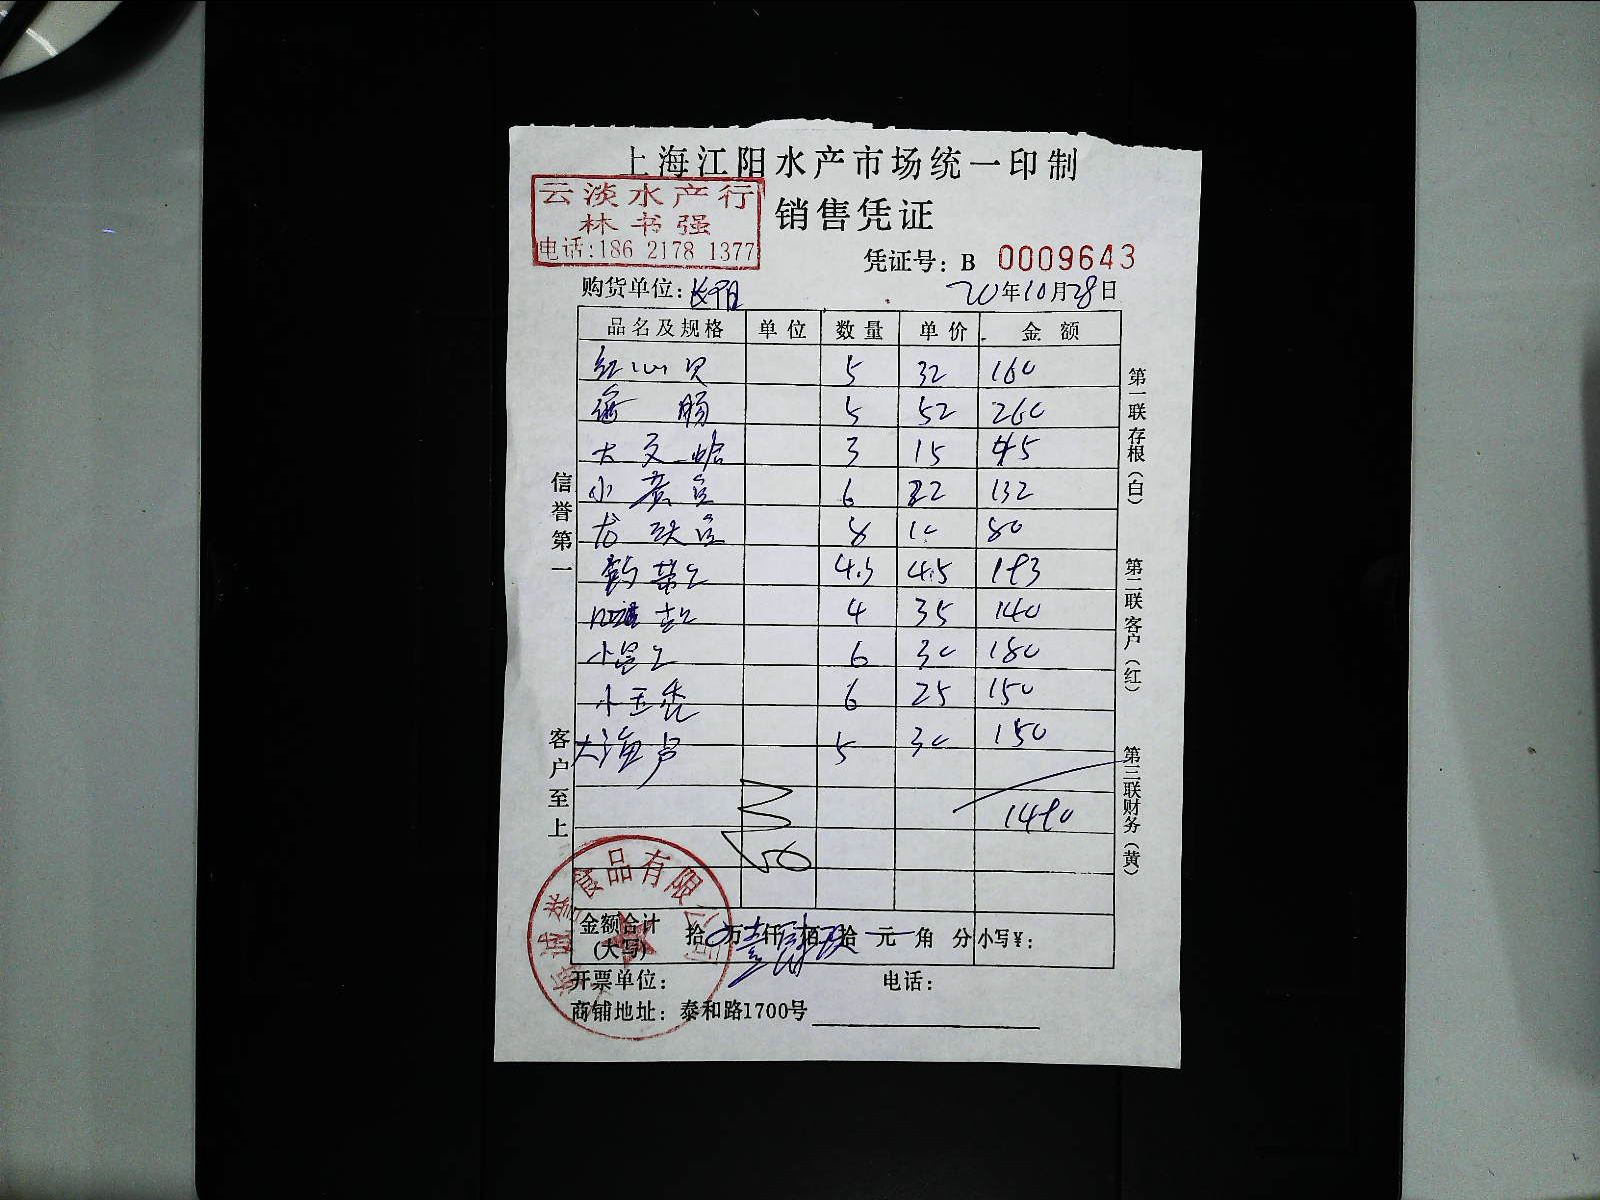 上海江阳水产市场统一印制
云淡水产行
林书强
电话:186 2178 1377
销售凭证
凭证号: B 0009643
购货单位:
20年10月28日
品名及规格 单位 数量 单价 金额
红 贝 5 32 160
海 肠 5 52 260
大 文 蛤 3 15 45
小 黄 6 22 132
龙 8 10 80
4.3 45 193
4 35 140
小 6 30 180
小 6 25 150
大海 5 30 150
1490
金额合计
(大写)
拾 万 仟 佰 拾 元 角 分 小写¥:
开票单位: 电话:
商铺地址: 泰和路1700号
信誉第一
客户至上
第一联存根(白)
第二联客户(红)
第三联财务(黄)
食品有限公司